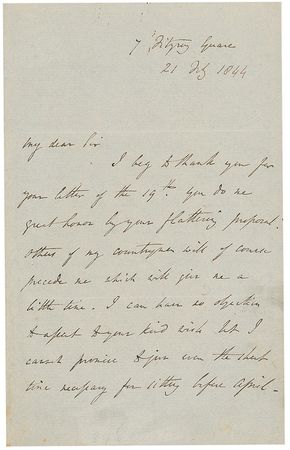 7 Fitzroy Square
21 Feby 1844
My dear Sir
I beg to thank you for
your letter of the 19th. You do me
great honor by your flattering proposal.
Others of my countrymen will of course
precede me which will give me a
little time. I can have no objection
to your kind wish but I
cannot promise to give even the short
time necessary for sitting before April -